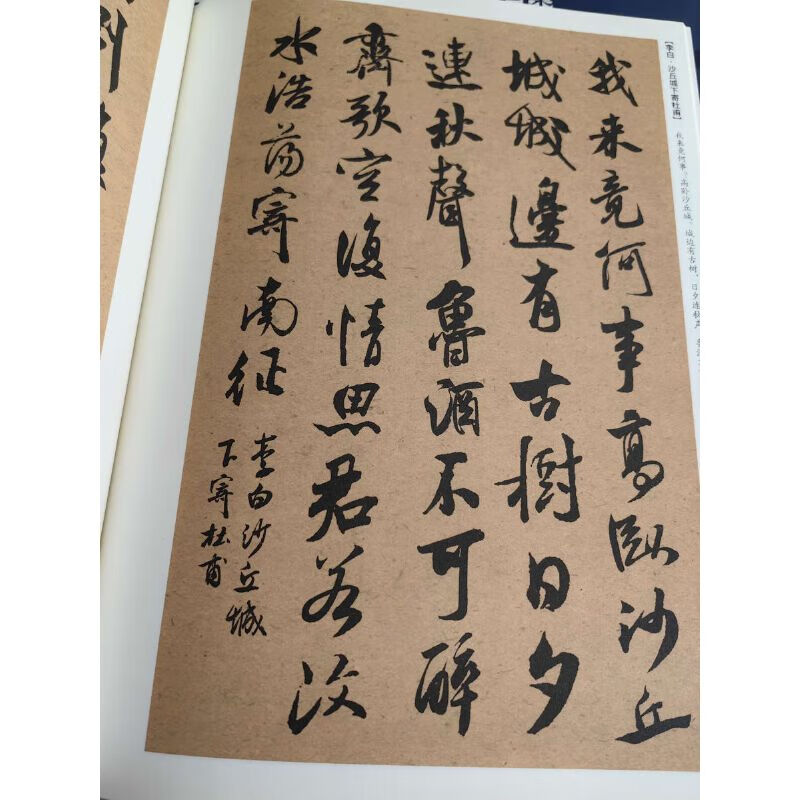 【李白·沙丘城下寄杜甫】
我来竟何事，高卧沙丘城。城边有古树，日夕连秋声。
我来竟何事高臥沙丘
城城邊有古樹日夕
連秋聲魯酒不可醉
齊歌空復情思君若汶
水浩蕩寄南征
李白沙丘城
下寄杜甫